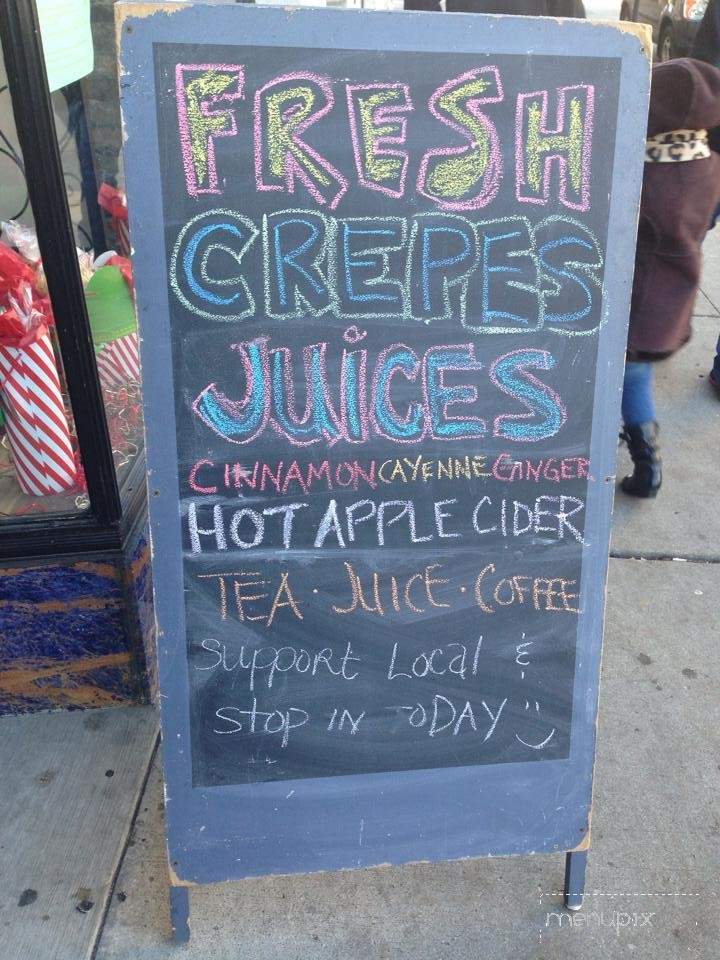 FRESH
CREPES
JUiCES
CINNAMON CAYENNE GINGER
HOT APPLE CIDER
TEA · JUICE · COFFEE
Support Local &
Stop IN TODAY :)
menupix